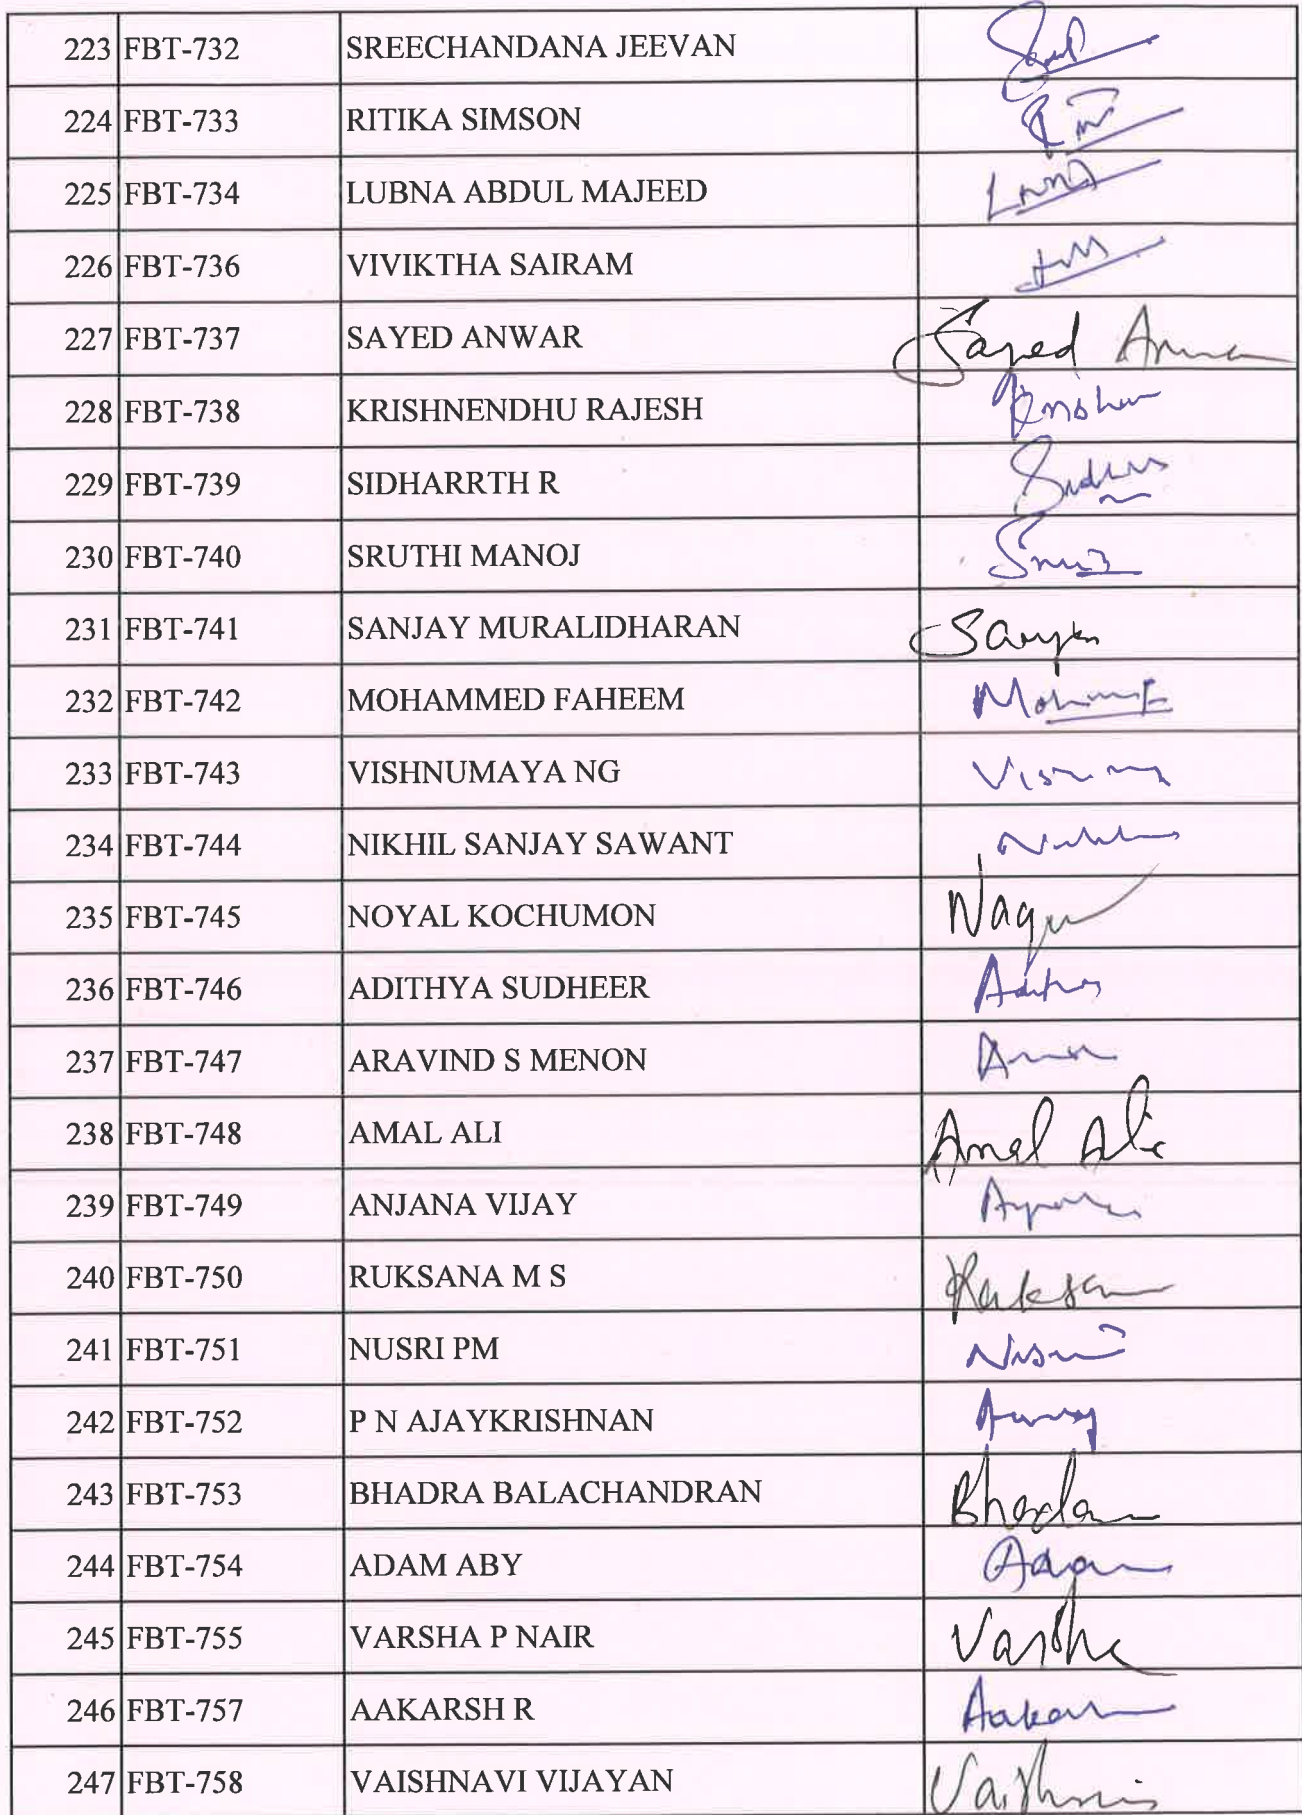 223 FBT-732 SREECHANDANA JEEVAN
224 FBT-733 RITIKA SIMSON
225 FBT-734 LUBNA ABDUL MAJEED
226 FBT-736 VIVIKTHA SAIRAM
227 FBT-737 SAYED ANWAR Sayed
228 FBT-738 KRISHNENDHU RAJESH
229 FBT-739 SIDHARRTH R
230 FBT-740 SRUTHI MANOJ
231 FBT-741 SANJAY MURALIDHARAN
232 FBT-742 MOHAMMED FAHEEM
233 FBT-743 VISHNUMAYA NG
234 FBT-744 NIKHIL SANJAY SAWANT
235 FBT-745 NOYAL KOCHUMON
236 FBT-746 ADITHYA SUDHEER
237 FBT-747 ARAVIND S MENON
238 FBT-748 AMAL ALI Amal Ali
239 FBT-749 ANJANA VIJAY
240 FBT-750 RUKSANA M S
241 FBT-751 NUSRI PM
242 FBT-752 P N AJAYKRISHNAN
243 FBT-753 BHADRA BALACHANDRAN
244 FBT-754 ADAM ABY
245 FBT-755 VARSHA P NAIR
246 FBT-757 AAKARSH R
247 FBT-758 VAISHNAVI VIJAYAN